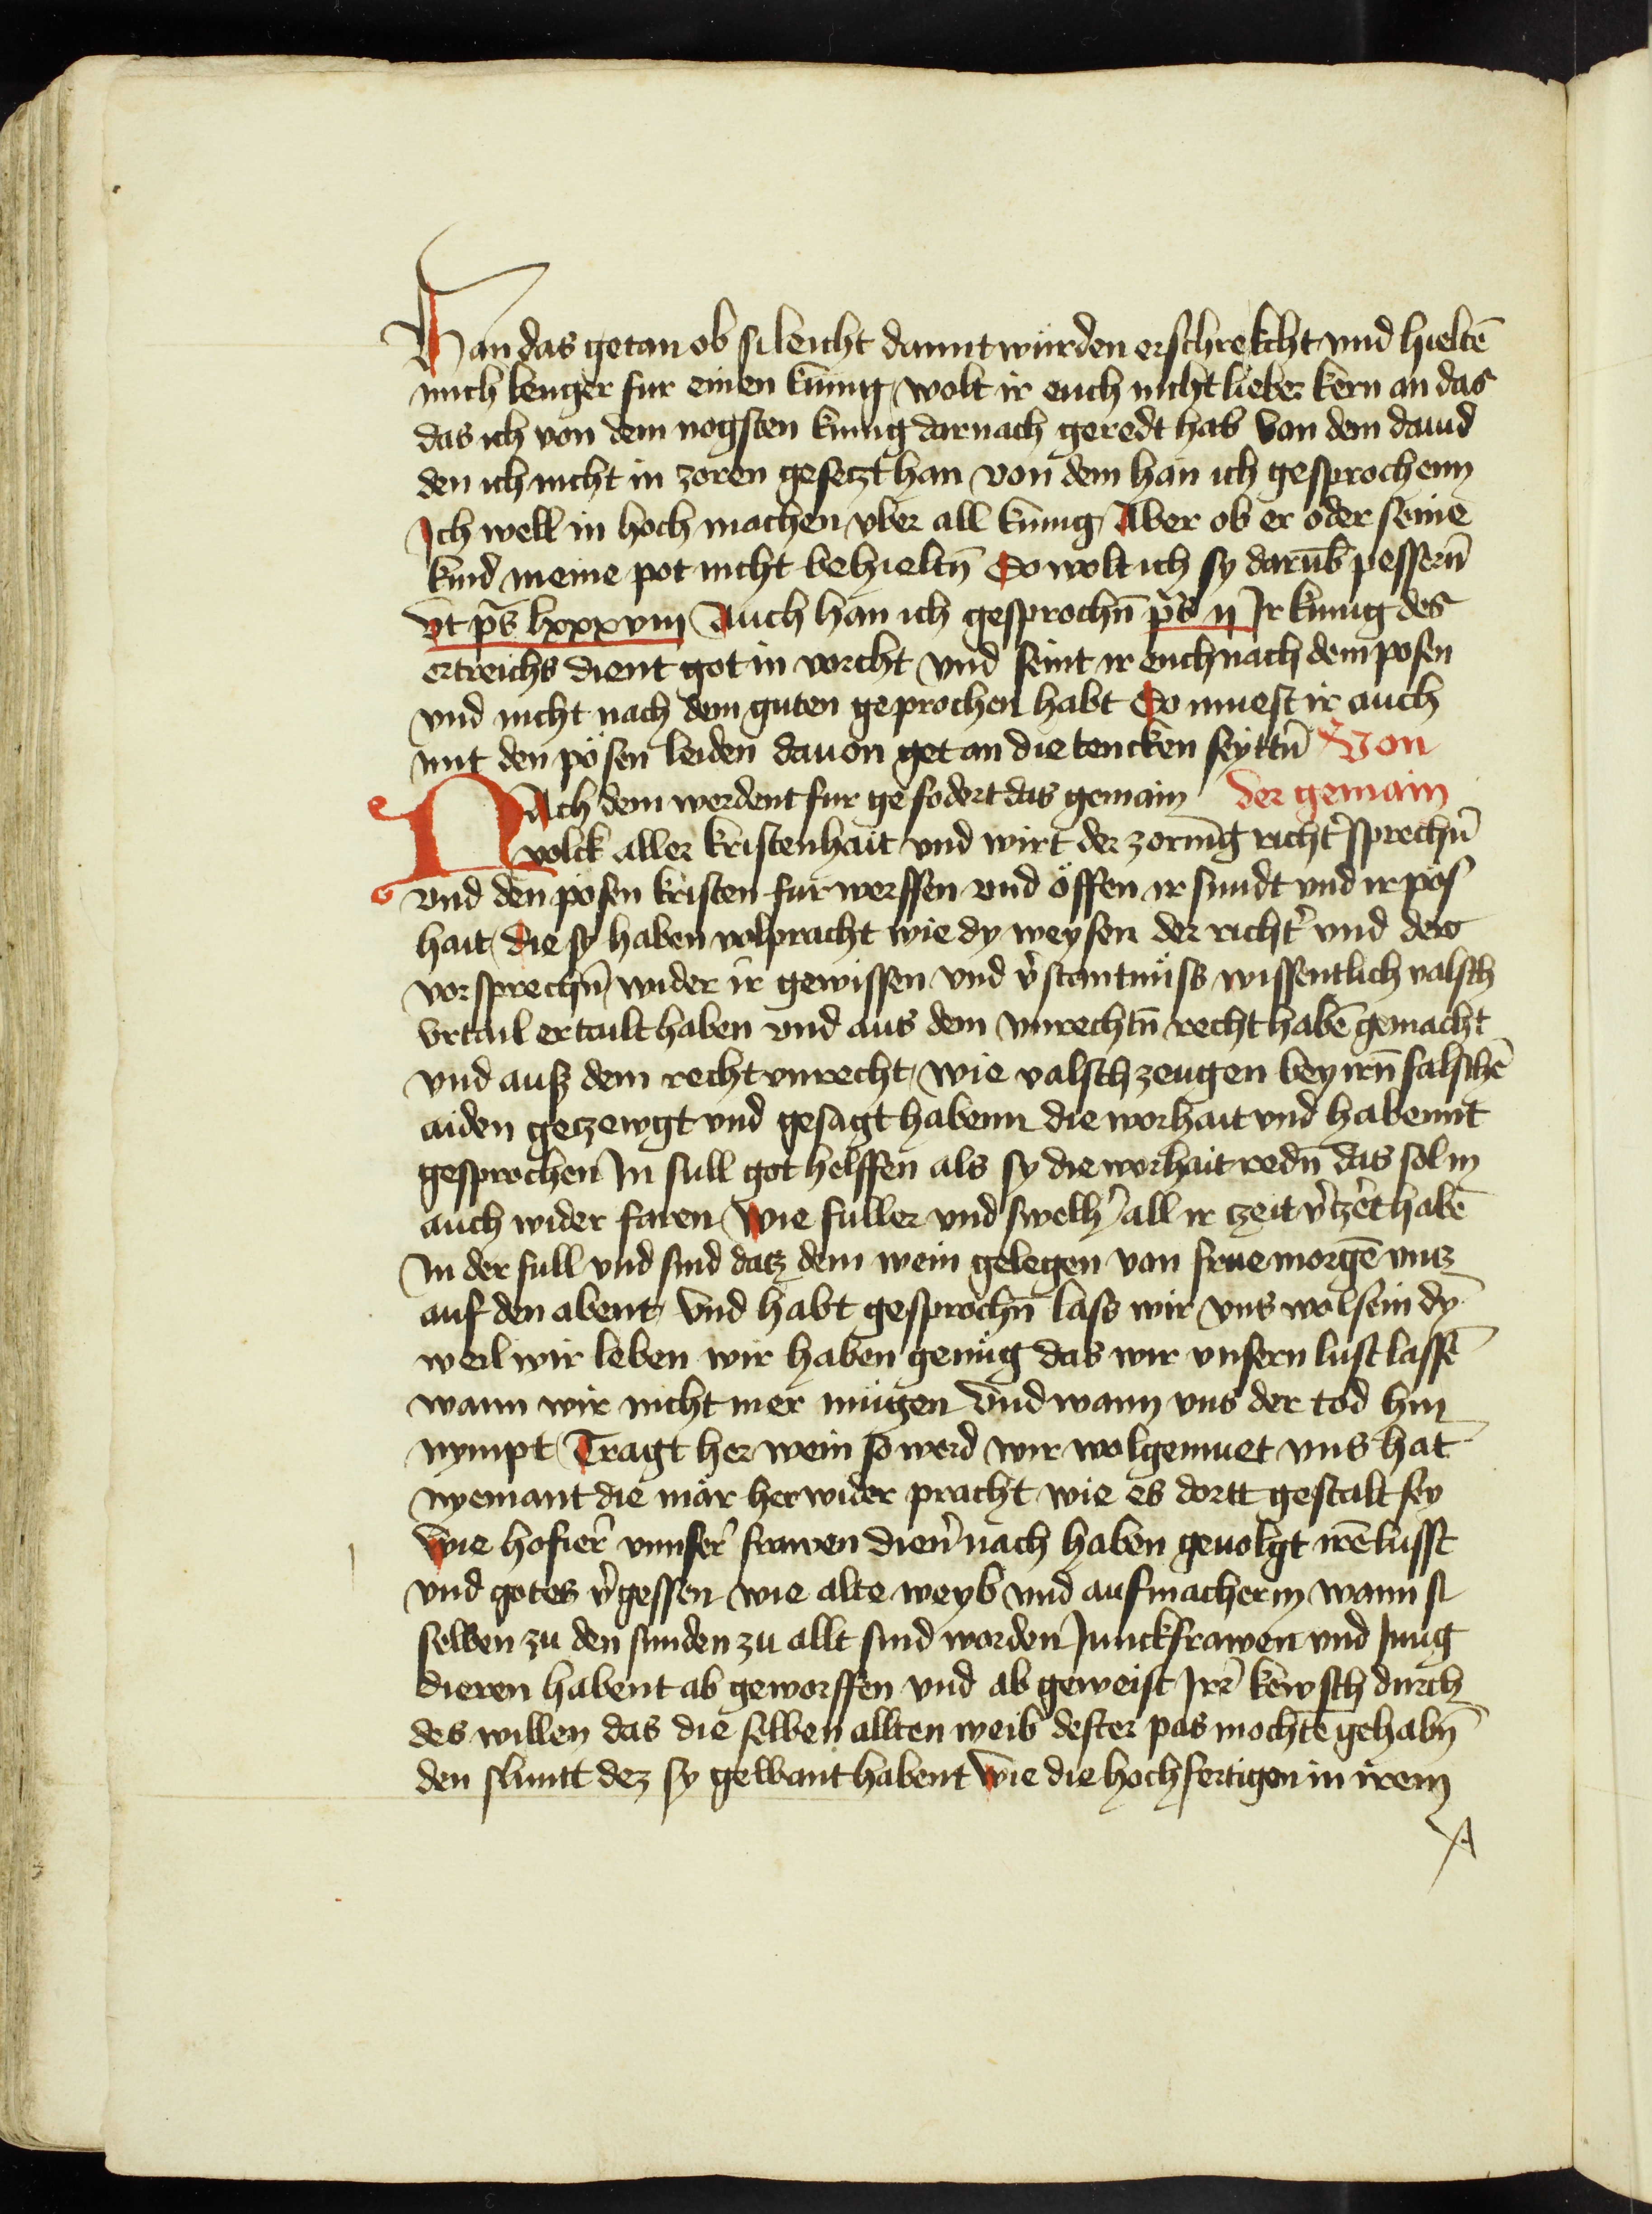 Han das getan ob si leicht damit würden erschrekcht vnd hieltē
mich lenger fur einen kunig wolt ir euch nicht lieber kern an das
das ich von dem nogsten kunig darnach geredt hab Von dem dauid
den ich nicht in zoren gesetzt han von dem han ich gesprochenn
Ich well in hoch machen vber all kunig Aber ob er oder seine
kind meine pot nicht behieltn̄ So wolt ich sy darūb pessern̄
vt ps̄ lxxxviij Auch han ich gesprochn̄ ps̄ ij Ir kunig des
ertreichs dient got in vorcht vnd seint ir euch nach dem posen
vnd nicht nach dem guten geprochen habt So muest ir auch
mit den pösen leiden dauon get an die tencken seyttn̄ Von
der gemain
NAch dem werdent fur gefodert das gemain
volck aller kristenhait vnd wirt der zornig richt̄ sprechn̄
vnd den pösen kristen fur werffen vnd öffen ir sundt vnd ir pös
hait die sy haben volpracht wie dy weysen der richt̄ vnd der
vorsprechn̄ wider ir gewissen vnd v̄stantnüss wissentlich valsch
vrtail ertailt haben vnd aus dem vnrechtn̄ recht habē gemacht
vnd ausz dem recht vnrecht wie valsch zeugen bey irn̄ falschē
aiden geczewgt vnd gesagt habenn die worhait vnd habennt
gesprochen In sull got helffen als sy die worhait redn̄ das sol in
auch wider faren Wie fuller vnd swelh̄ all ir czeit v̄tzert habē
In der full vnd sind datz dem wein gelegen von frue morgē vntz
auf den abent Vnd habt gesprochn̄ lass wir vns wol sein dy
weil wir leben wir haben genüg das wir vnsern lust lassē
wann wir nicht mer mügen Vnd wann vns der tod hin
nympt Tragt her wein so werd wir wolgemuet vns hat
nyemant die mär herwider pracht wie es dortt gestalt sey
Wie hofier̄ vnnser̄ frawen dien̄ nach haben geuolgt irē lusst
vnd gotes v̄gessen wie alte weyb vnd aufmacherin wann si
selben zu den sunden zu allt sind worden Junckfrawen vnd Jung
dieren habent ab geworffen vnd ab geweist Irr̄ kewsch durch
des willen das die selben allten weib dester pas mochtē gehabn̄
den sluntt dez sy gewant habent Wie die hochfertigen in irem